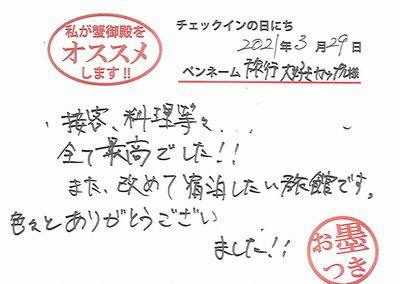 私が蟹御殿を
オススメ
します!!
チェックインの日にち
2021年3月29日
ペンネーム 旅行大好きカップル様
接客、料理等々...
全て最高でした!!
また、改めて宿泊したい旅館です。
色々とありがとうござい
ました!!
お墨
つき